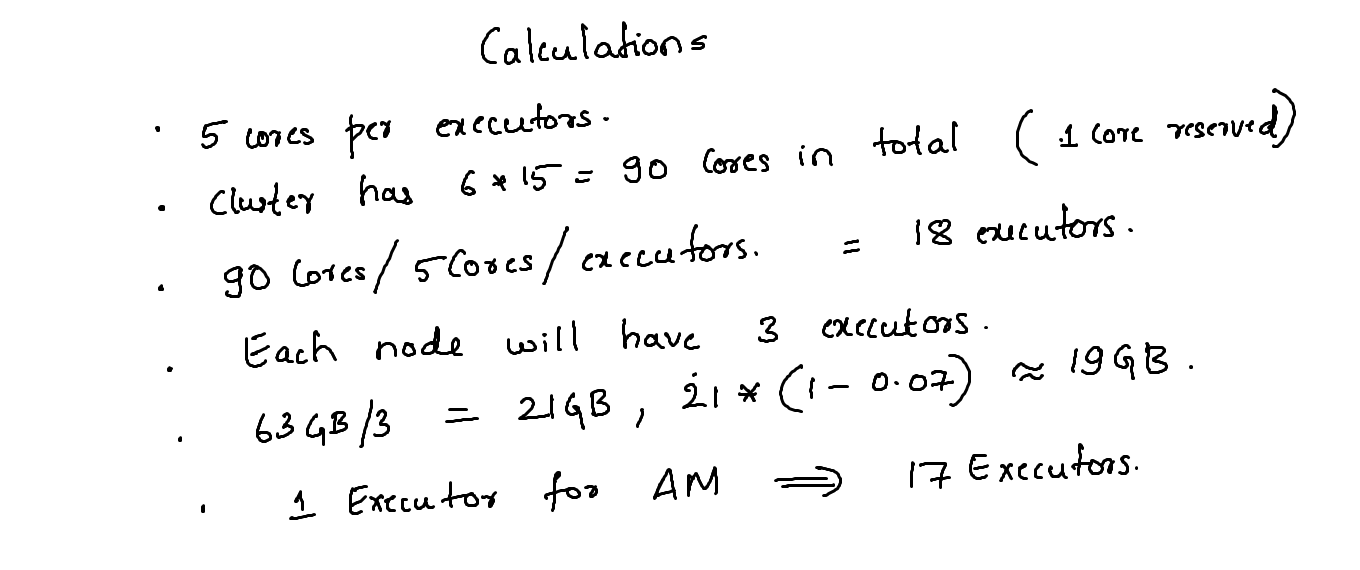 Calculations
• 5 cores per executors.
• Cluster has 6 * 15 = 90 Cores in total ( 1 core reserved)
• 90 Cores / 5 Cores / executors. = 18 executors.
• Each node will have 3 executors.
• 63 GB /3 = 21 GB , 21 * (1 - 0.07) ≈ 19 GB .
• 1 Executor for AM ⇒ 17 Executors.